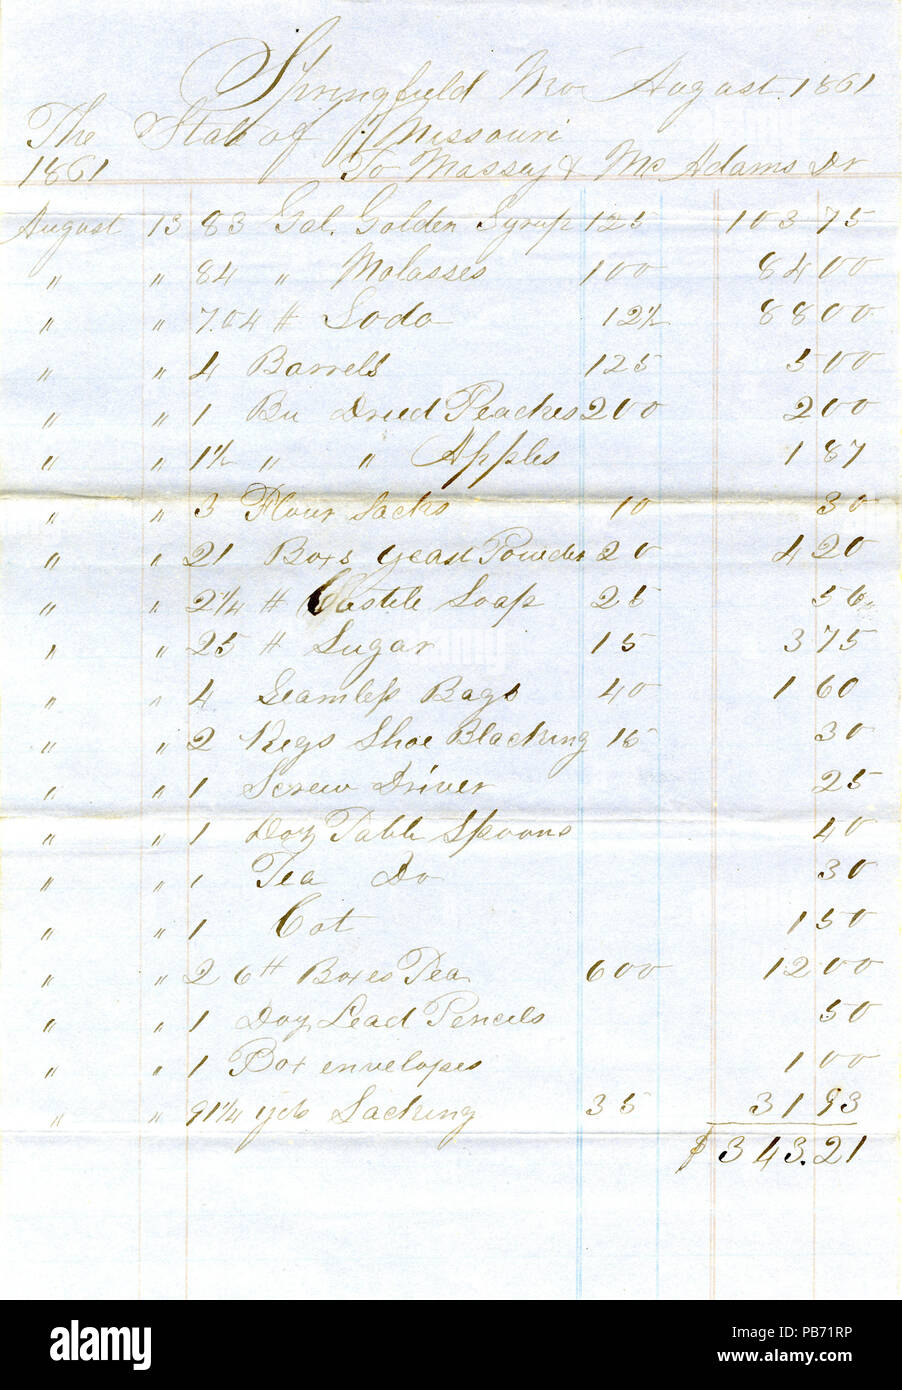 Springfield Mo August 1861
The State of Missouri
1861 To Massey & McAdams Dr
August 13 83 Gal. Golden Syrup 125 103 75
" " 84 " Molasses 100 84 00
" " 704 # Soda 12½ 88 00
" " 4 Barrells 125 5 00
" " 1 Bu Dried Peaches 200 2 00
" " 1½ " " Apples 1 87
" " 3 Flour Sacks 10 30
" " 21 Boxs Yeast Powder 20 4 20
" " 2¼ # Castile Soap 25 56
" " 25 # Sugar 15 3 75
" " 4 Seamless Bags 40 1 60
" " 2 Kegs Shoe Blacking 15 30
" " 1 Screw Driver 25
" " 1 Doz Table Spoons 40
" " 1 Tea Do 30
" " 1 Cot 1 50
" " 2 6# Boxes Tea 600 12 00
" " 1 Doz Lead Pencils 50
" " 1 Box envelopes 1 00
" " 91¼ yds Sacking 35 31 93
$343.21
alamy
Image ID: PB71RP
www.alamy.com